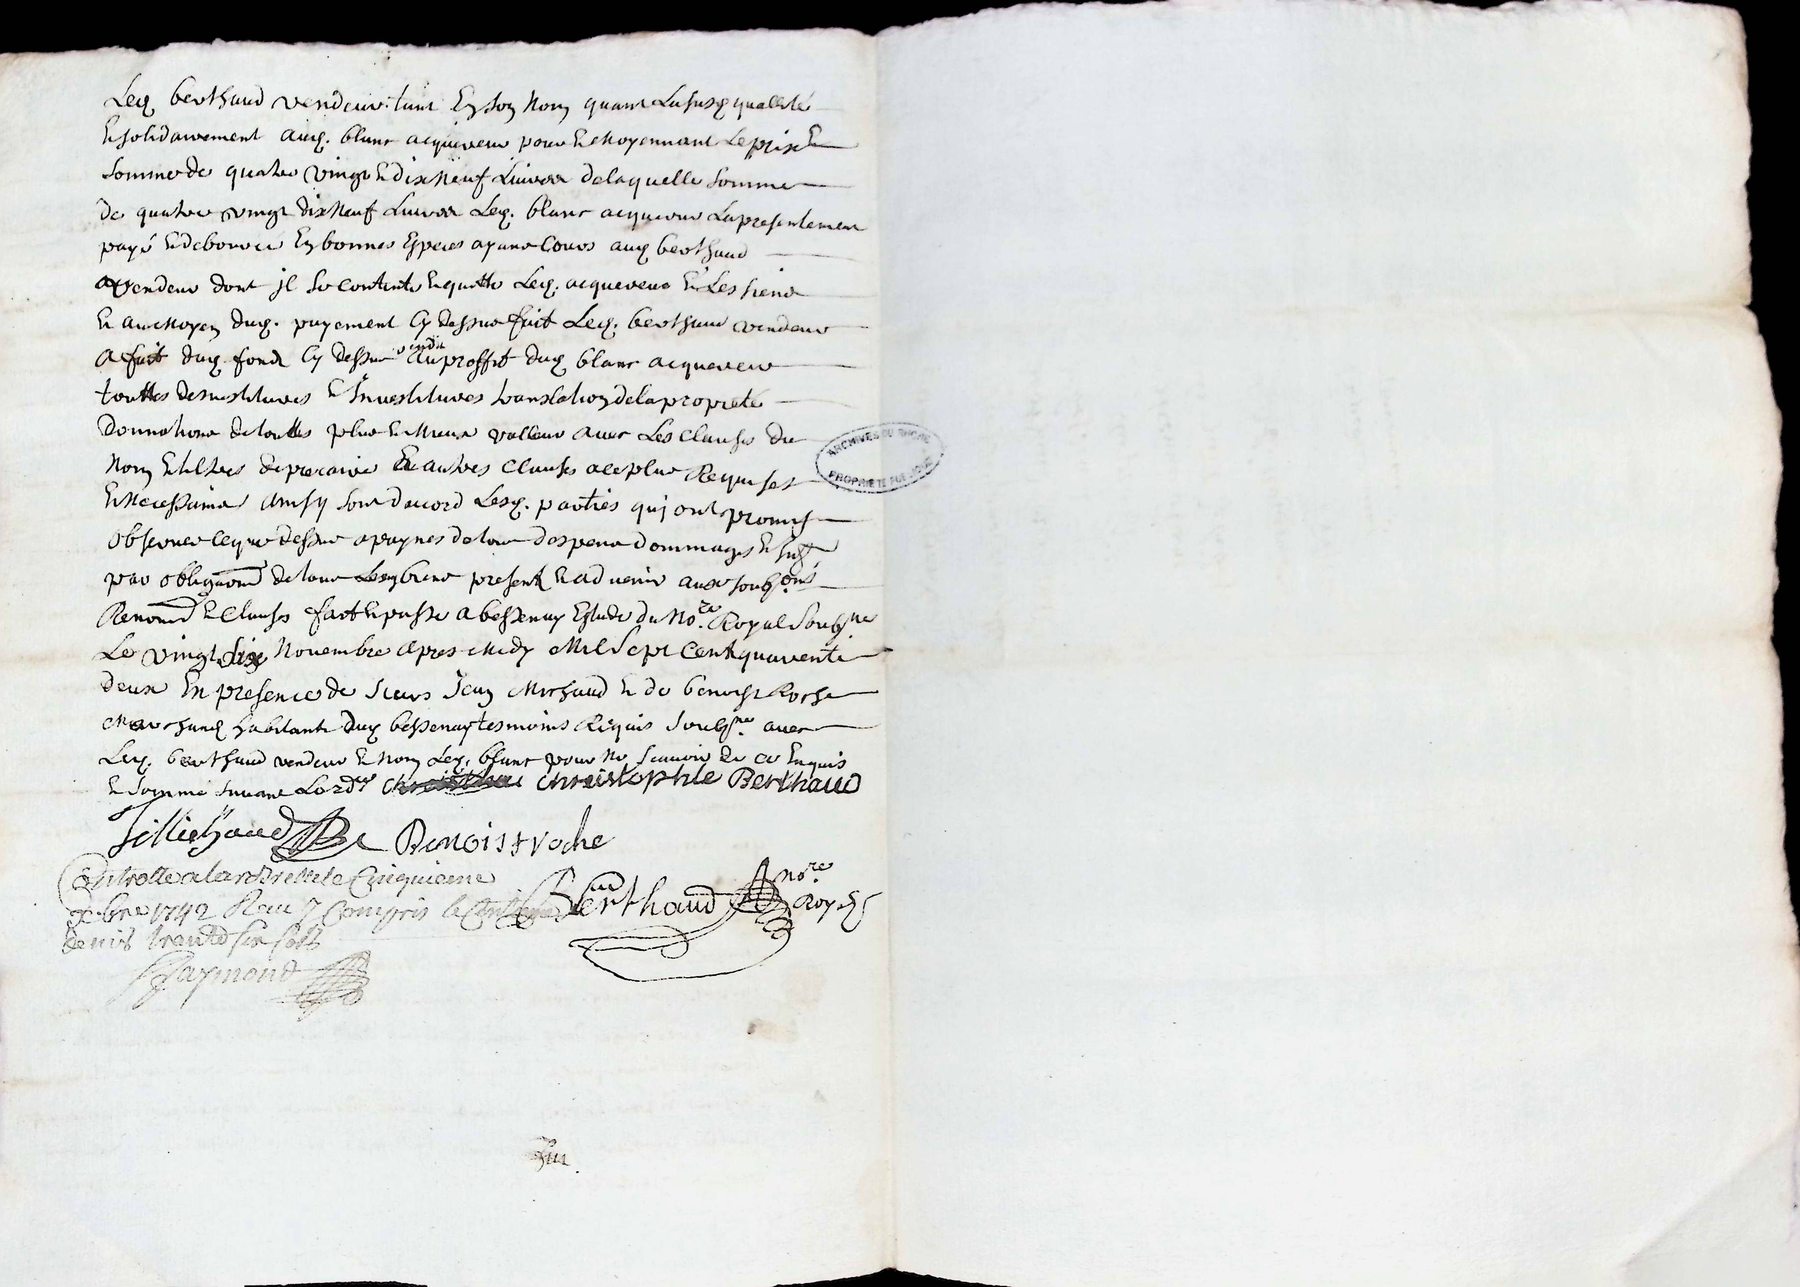 Leq. berthaud vendeur tant En son Nom quant La susq qualité
Et solidairement auq. blanc acquereur pour Et Moyennant Le prix Et
Somme de quatre Vingt Et dix Neuf Livres de laquelle somme
De quatre vingt dix Neuf Livres Leq. blanc acquereur La presentement
payé Et deboursé En bonnes Especes ayant Cours auq berthaud
vendeur dont jl Se contente Et quitte Leq. acquereur Et Les siens
Et au Moyen duq. payement Cy dessus fait Leq. berthaud vendeur
a fait duq. fond Cy dessus vendu au proffit duq blanc acquereur
touttes desvestitures Et Jnvestitures translation de la propriété
Donnations de touttes plus Et Mieux valleur avec Les clauses de
Nom Et tiltres de precaire Et autres Clauses a ce plus Requises
Et Necessaires ainsy sont d'accord Lesq. parties quj ont promis
Observer ce que dessus a paynes de tous despens dommages Et
par obligations de tous Leurs biens presents Et advenir aux
Renon Et Clauses fait Et passé a bessenay Estude du No.re Royal Soubs.ne
Le vingt six Novembre apres Midy Mil Sept Cent quarente
deux En presence de sieurs Jean Michaud Et de benoist Roche
Marchands habitants duq bessenay tesmoins Requis Soubs.nes avec
Leq. berthaud vendeur Et Non Leq. blanc pour Ne scavoir de ce Enquis
Et sommé suivant L'ord.ce Christophle Berthaud
J Michaud Benoist roche
Controllé a larbresle le Cinquieme
xbre 1742 Recu Compris le
denis trante six sols
Berthaud no.re Royal
Raymond
ARCHIVES DU RHONE
PROPRIETE PUBLIQUE